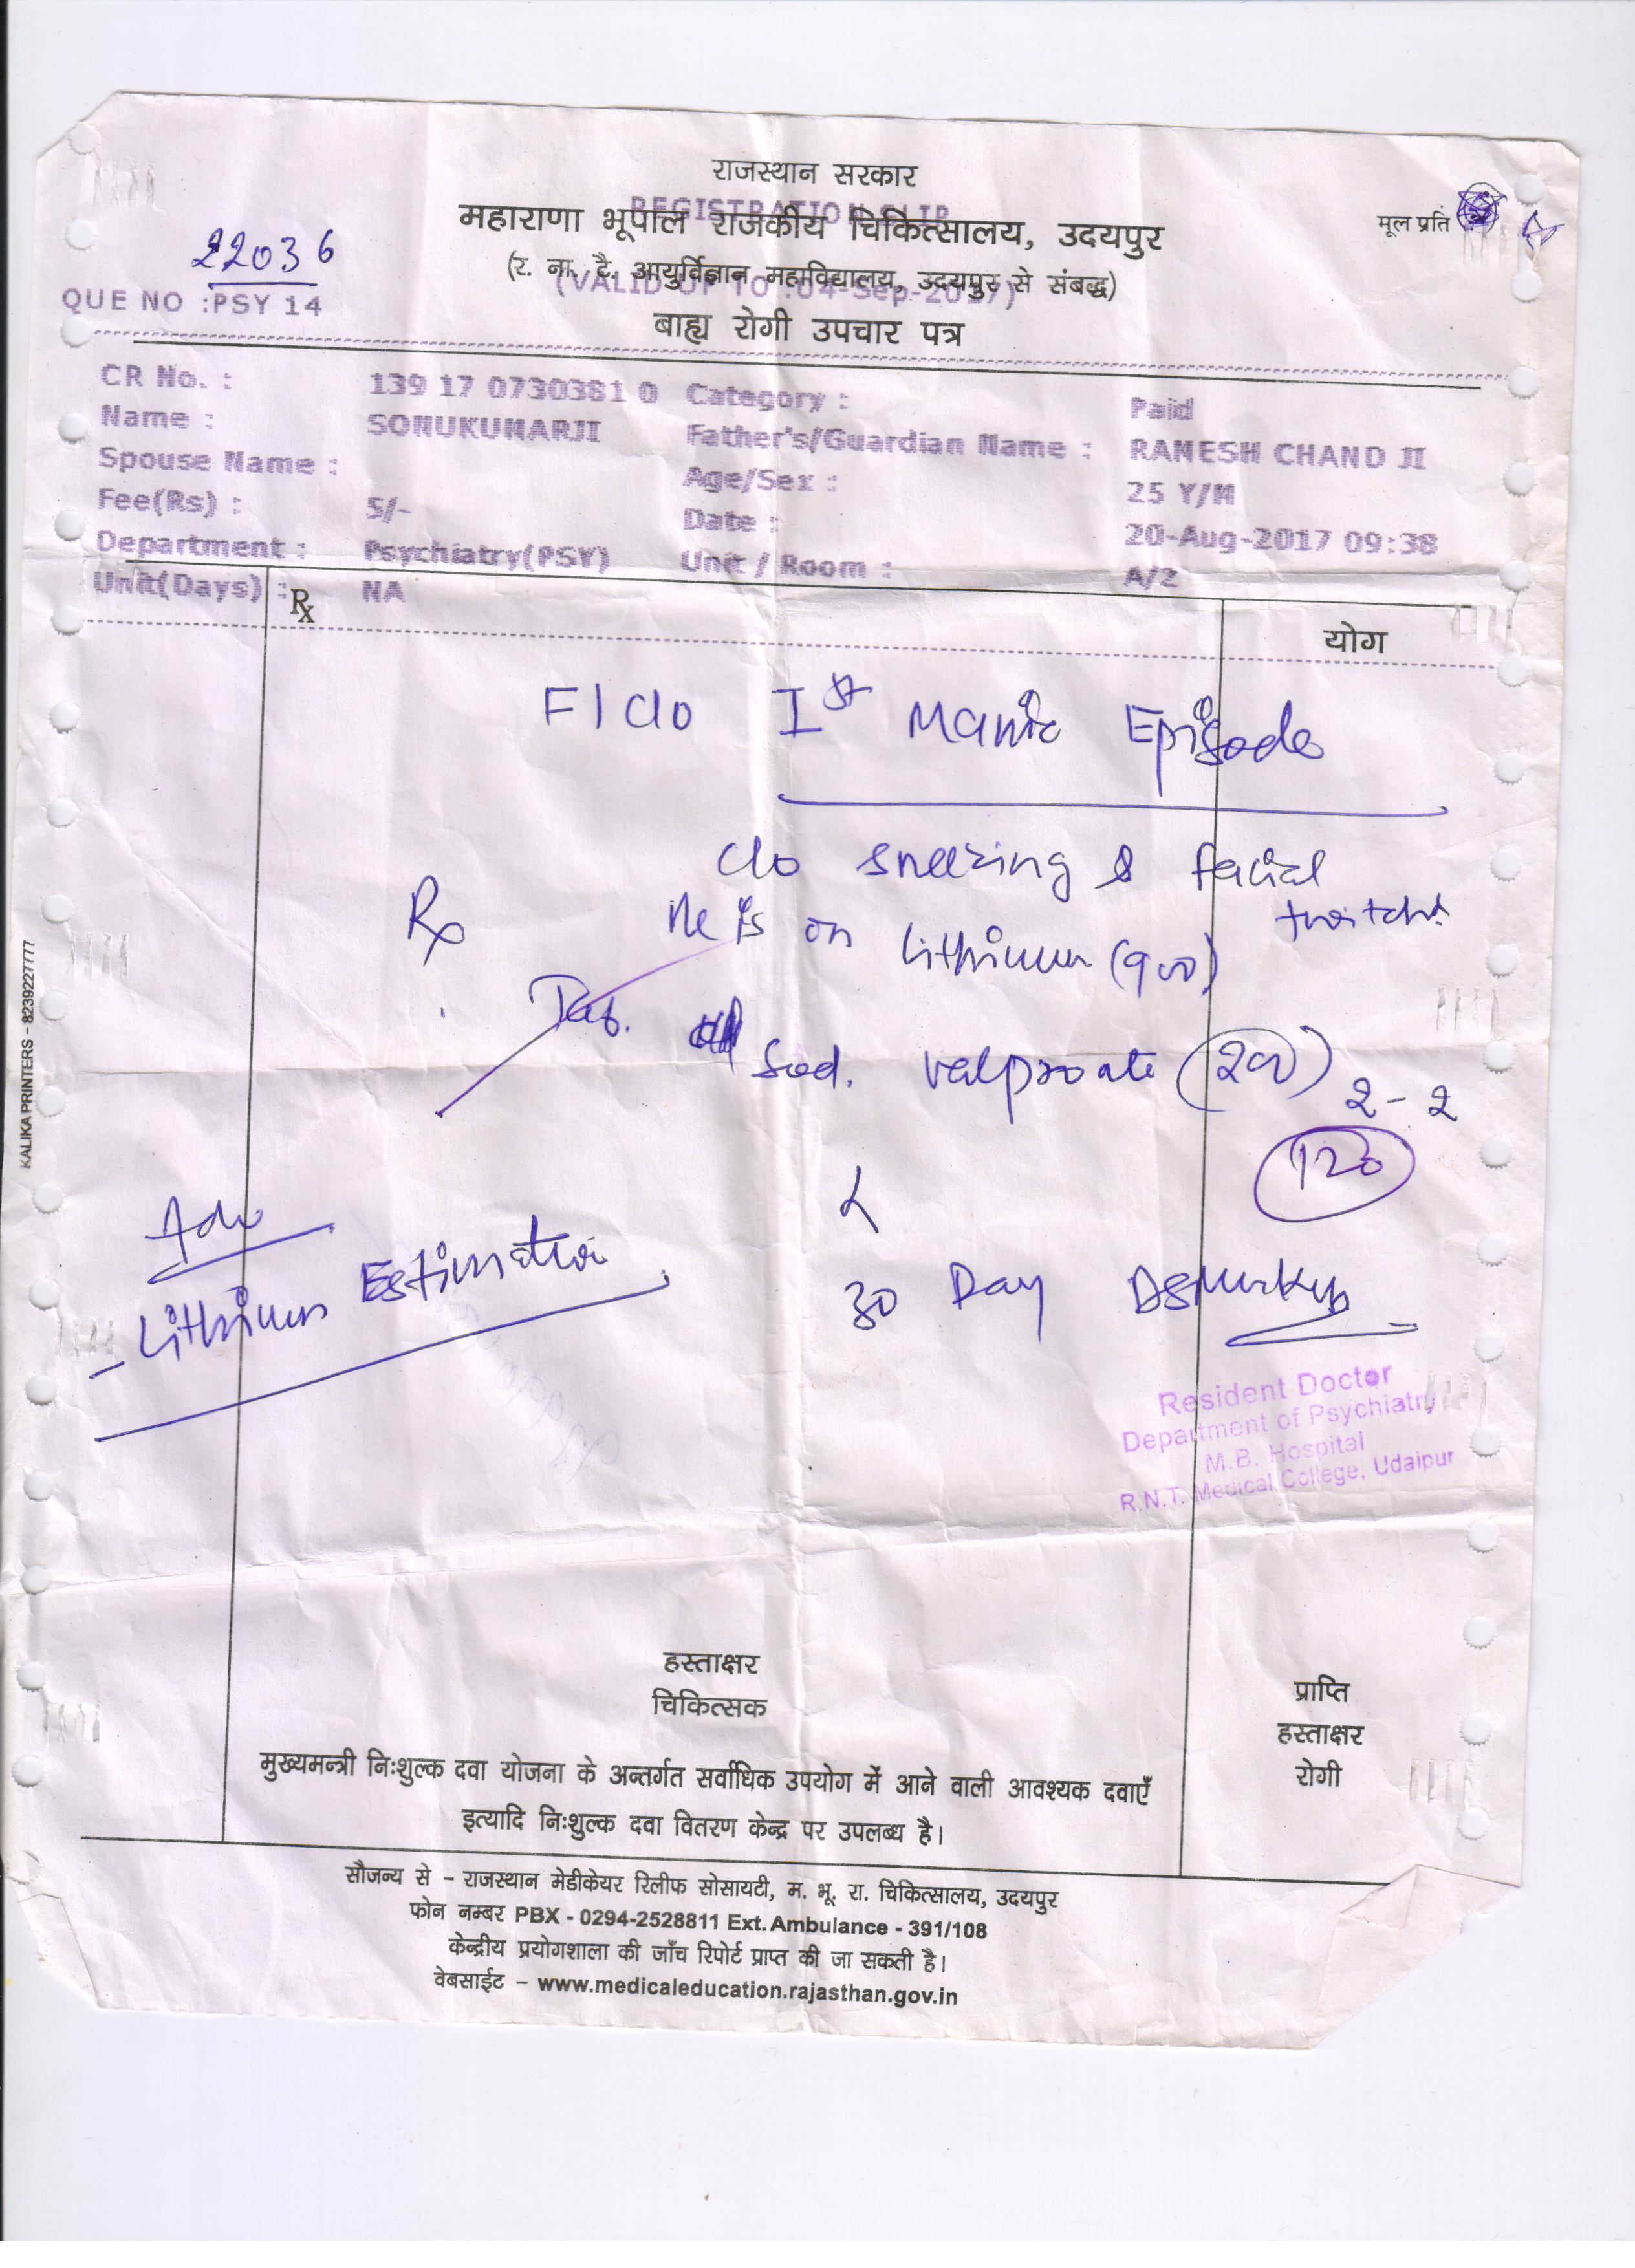 राजस्थान सरकार
REGISTRATION SLIP
महाराणा भूपाल राजकीय चिकित्सालय, उदयपुर
मूल प्रति
22036
(र. ना. टै. आयुर्विज्ञान महाविद्यालय, उदयपुर से संबद्ध)
(VALID UP TO :04-Sep-2017)
QUE NO :PSY 14
बाह्य रोगी उपचार पत्र
CR No. : 139 17 0730381 0 Category : Paid
Name : SONUKUMARJI Father's/Guardian Name : RAMESH CHAND JI
Spouse Name : Age/Sex : 25 Y/M
Fee(Rs) : 5/- Date : 20-Aug-2017 09:38
Department : Psychiatry(PSY) Unit / Room : A/2
Unit(Days) : NA
Rx योग
F/C/o Ist Manic Episode
C/o sneezing & facial
twitch
Rx He is on Lithium (900)
Tab. Sod. valproate (200) 2-2
120
Adv
- Lithium Estimation
30 Day
Resident Doctor
Department of Psychiatry
M.B. Hospital
R.N.T. Medical College, Udaipur
KALIKA PRINTERS - 8239227777
हस्ताक्षर
चिकित्सक
प्राप्ति
हस्ताक्षर
रोगी
मुख्यमन्त्री निःशुल्क दवा योजना के अन्तर्गत सर्वाधिक उपयोग में आने वाली आवश्यक दवाएँ
इत्यादि निःशुल्क दवा वितरण केन्द्र पर उपलब्ध है।
सौजन्य से - राजस्थान मेडीकेयर रिलीफ सोसायटी, म. भू. रा. चिकित्सालय, उदयपुर
फोन नम्बर PBX - 0294-2528811 Ext. Ambulance - 391/108
केन्द्रीय प्रयोगशाला की जाँच रिपोर्ट प्राप्त की जा सकती है।
वेबसाईट - www.medicaleducation.rajasthan.gov.in